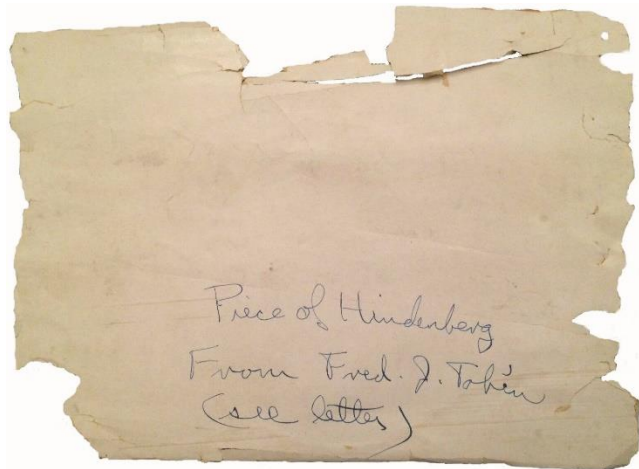 Piece of Hindenberg
From Fred. J. Tobin
(see letter)